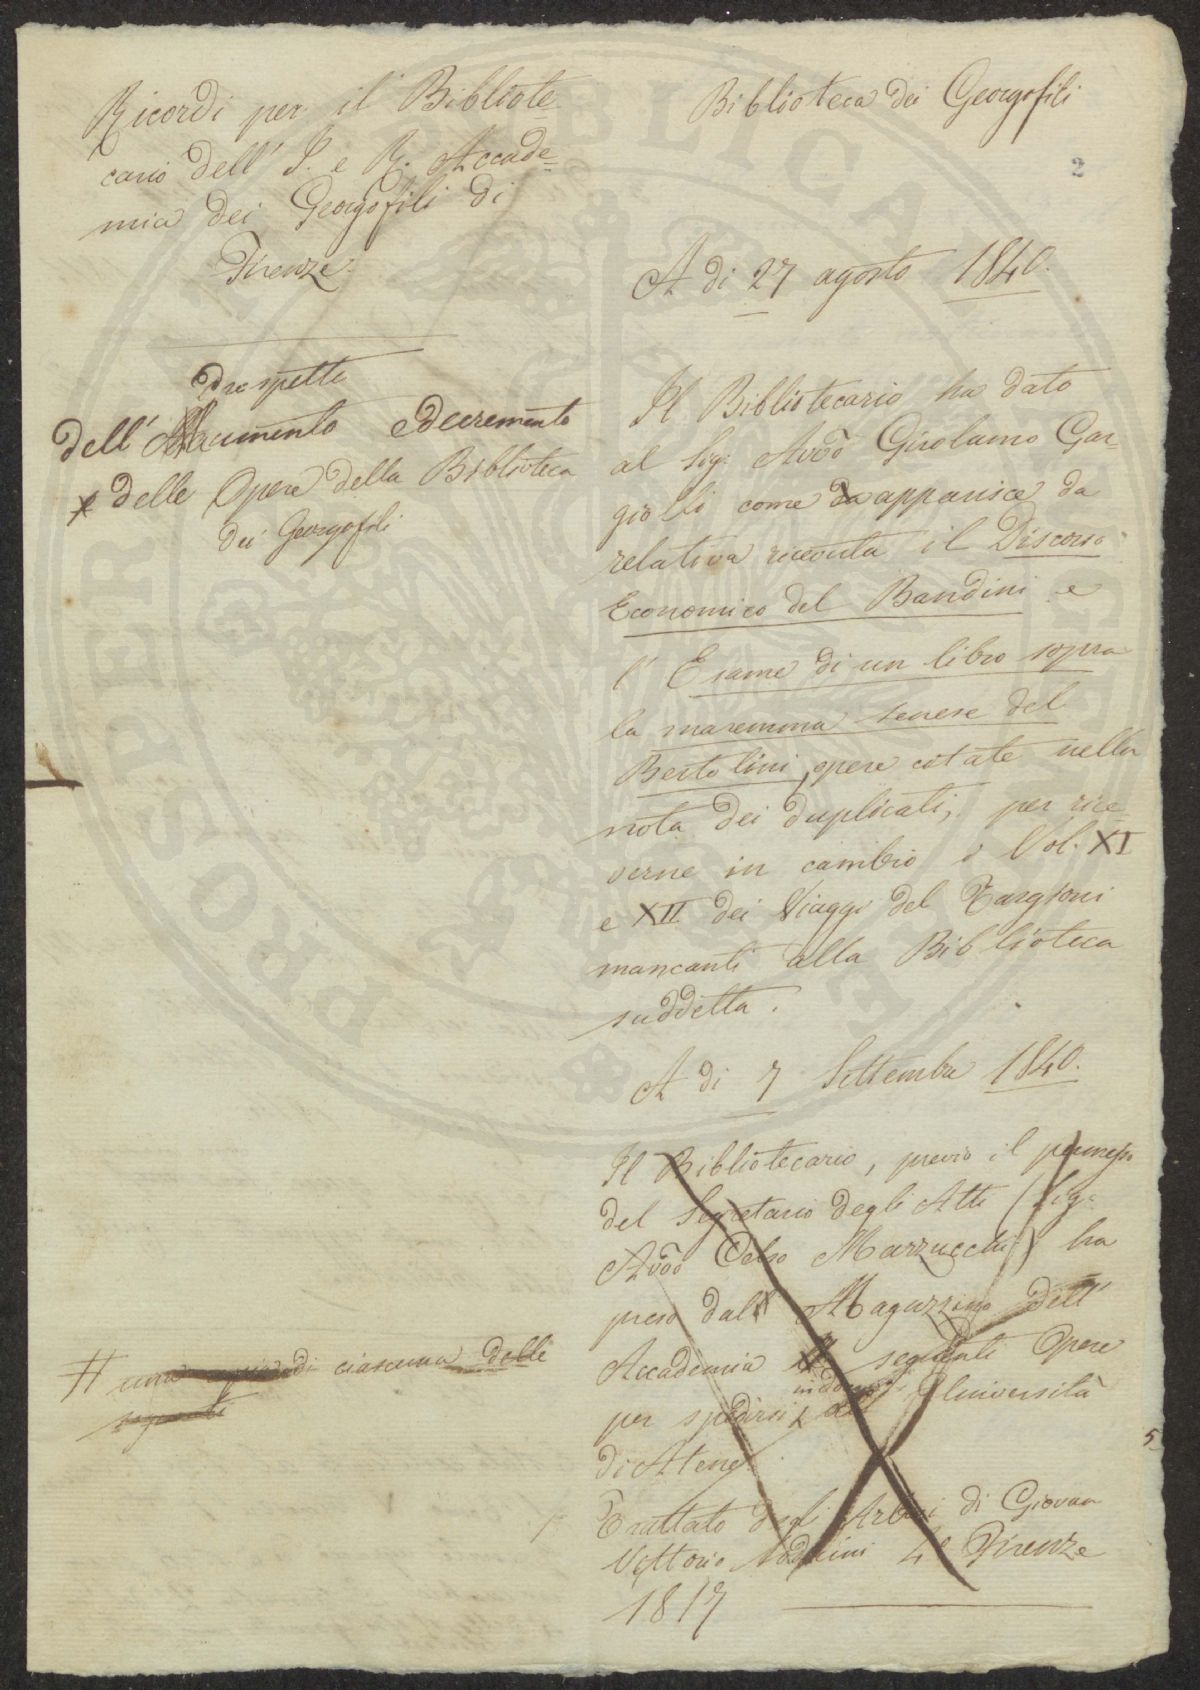 Ricordi per il Bibliote-
cario dell' I. e R. Accade=
mia dei Georgofili di
Firenze
Prospetto
dell' Aumento e decremento
delle Opere della Biblioteca
dei Georgofili
# una copia di ciascuna delle
seguenti
Biblioteca dei Georgofili
2
A dì 27 agosto 1840.
Il Bibliotecario ha dato
al Sig. Avvo Girolamo Gar-
giolli come da apparisce da
relativa ricevuta il Discorso
Economico del Bandini e
l' Esame di un libro sopra
la maremma senese del
Bertolini, opere cotate nella
nota dei duplicati, per rice
verne in cambio i Vol. XI
e XII dei Viaggi del Targioni
mancanti alla Biblioteca
suddetta.
A dì 7 Settembre 1840.
Il Bibliotecario, previo il permesso
del Segretario degli Atti (Sig.
Avvo Celso Marzucchi) ha
preso dal Magazzino dell'
Accademia le seguenti Opere
per spedirsi in dono all' Università
di Atene.
Trattato degli Arbori di Giovan
Vettorio Soderini 4o Firenze
1817
5
PROSPERITATI PUBLICAE AUGENDAE